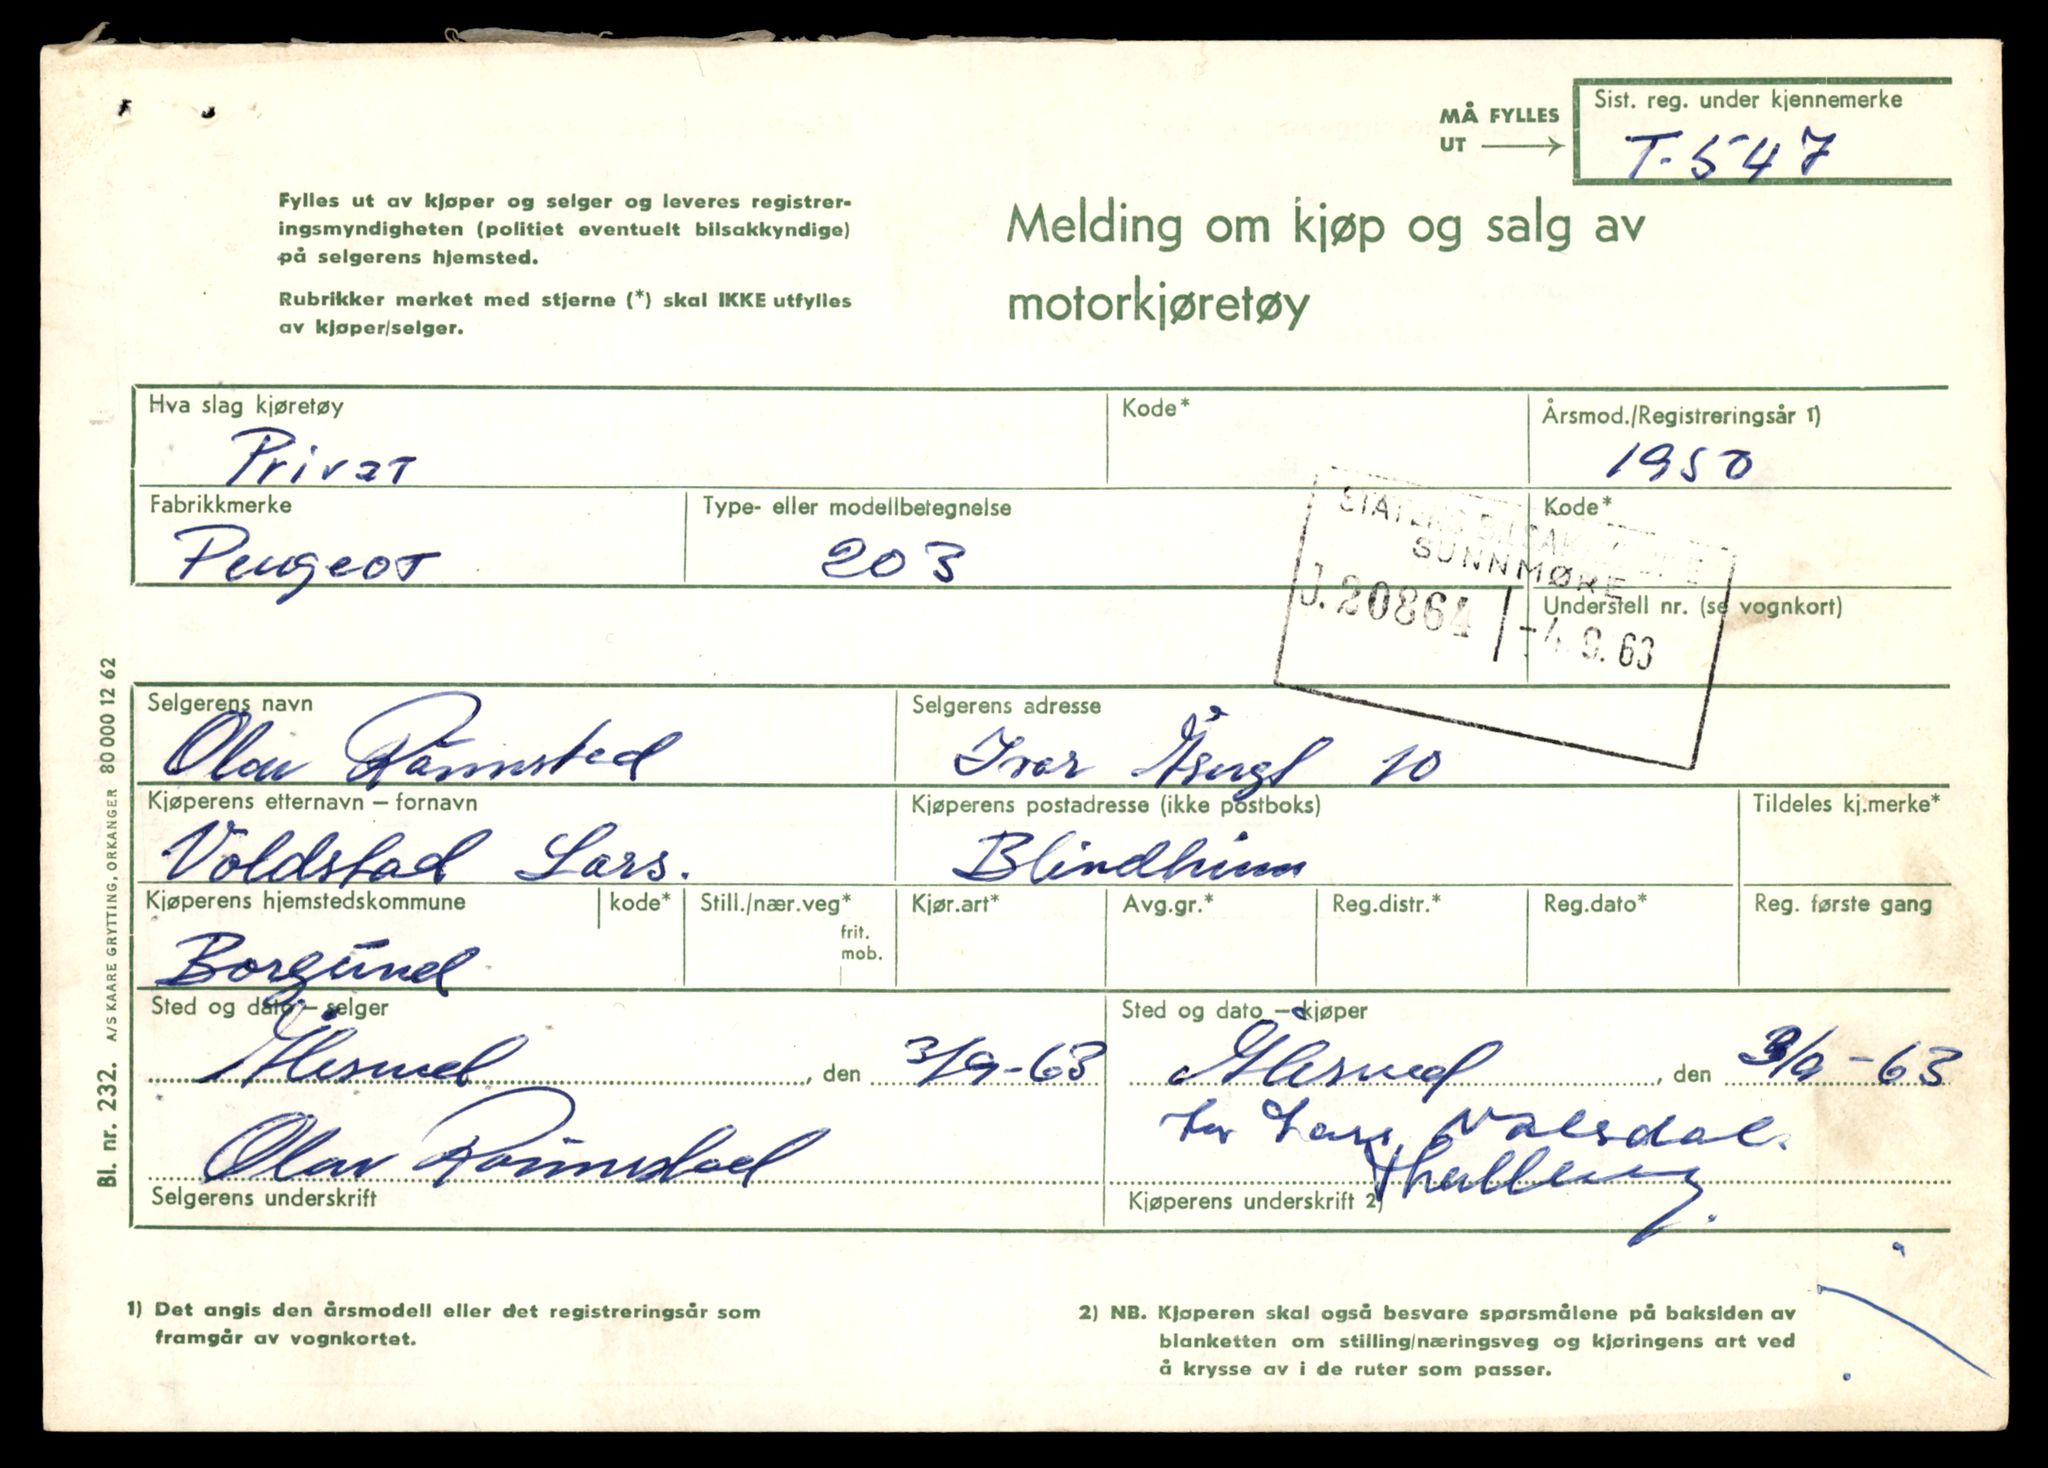 Sist. reg. under kjennemerke
MÅ FYLLES
UT
T-547
Fylles ut av kjøper og selger og leveres registrer-
ingsmyndigheten (politiet eventuelt bilsakkyndige)
på selgerens hjemsted.
Rubrikker merket med stjerne (*) skal IKKE utfylles
av kjøper/selger.
Melding om kjøp og salg av
motorkjøretøy
Hva slag kjøretøy
Kode*
Årsmod./Registreringsår 1)
Privat
1950
Fabrikkmerke
Type- eller modellbetegnelse
Kode*
Peugeot
203
STATENS BILSAKKYNDIGE
SUNNMØRE
J. 20864 -4. 9. 63
Understell nr. (se vognkort)
Selgerens navn
Selgerens adresse
Olav
Ivar 10
Kjøperens etternavn – fornavn
Kjøperens postadresse (ikke postboks)
Tildeles kj.merke*
Voldstad Lars.
Blindheim
Kjøperens hjemstedskommune
kode*
Still./nær.veg*
frit.
mob.
Kjør.art*
Avg.gr.*
Reg.distr.*
Reg.dato*
Reg. første gang
Borgund
Sted og dato – selger
Sted og dato – kjøper
Ålesund, den 3/9-63
Ålesund, den 3/9-63
Olav
Lars
Selgerens underskrift
Kjøperens underskrift 2)
1) Det angis den årsmodell eller det registreringsår som
framgår av vognkortet.
2) NB. Kjøperen skal også besvare spørsmålene på baksiden av
blanketten om stilling/næringsveg og kjøringens art ved
å krysse av i de ruter som passer.
Bl. nr. 232. A/S KAARE GRYTTING, ORKANGER 80 000 12 62